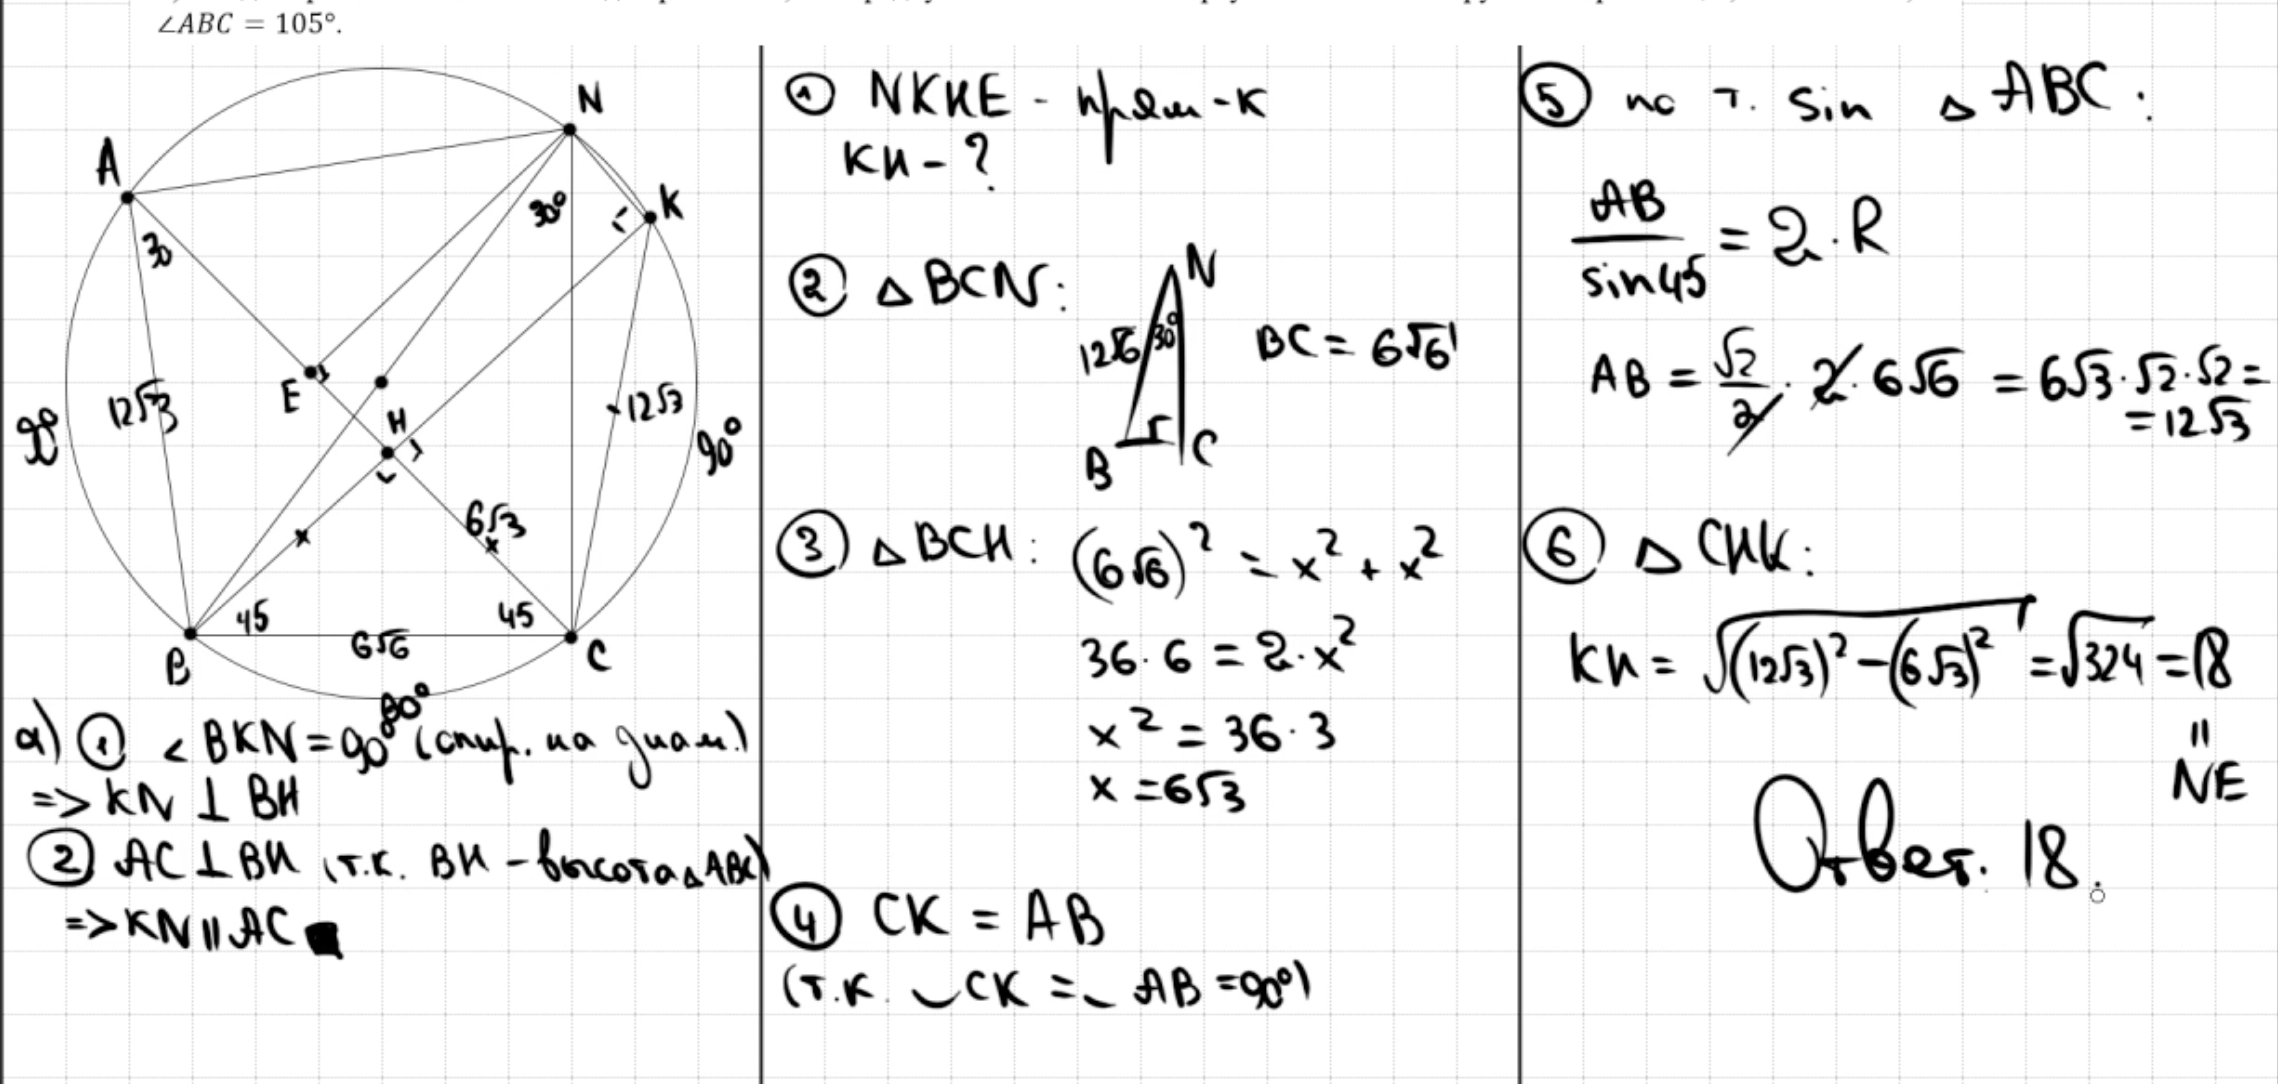 ∠ABC = 105°.
N
A
K
30°
30
E
12√3
H
12√3
90°
90°
6√3
x
x
45
45
6√6
B
C
90°
а) ① < BKN = 90° (опир. на диам.)
=> KN ⊥ BH
② AC ⊥ BH (т.к. BH - высота △ ABC)
=> KN || AC
① NKHE - прям-к
KH - ?
② △ BCN:
N
12√6
30°
BC = 6√6
B
C
③ △ BCH: (6√6)² = x² + x²
36 · 6 = 2 · x²
x² = 36 · 3
x = 6√3
④ CK = AB
(т.к. ◡ CK = ◡ AB = 90°)
⑤ по т. sin △ ABC:
AB / sin45 = 2 · R
AB = √2/2 · 2 · 6√6 = 6√3 · √2 · √2 =
= 12√3
⑥ △ CHK:
KH = √((12√3)² - (6√3)²) = √324 = 18
||
NE
Ответ. 18.